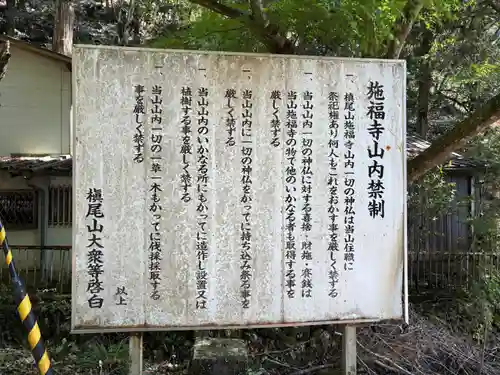 施福寺山内禁制
一、槙尾山施福寺山内一切の神仏は当山住職に
祭祀権あり何人もこれをおかす事を厳しく禁ずる
一、当山山内一切の神仏に対する喜捨・財施・賽銭は
当山施福寺の物で他のいかなる者も取得する事を
厳しく禁ずる
一、当山山内に一切の神仏をかってに持ち込み祭る事を
厳しく禁ずる
一、当山山内のいかなる所にもかってに造作し設置又は
植樹する事を厳しく禁ずる
一、当山山内の一草一木もかってに伐採採取する
事を厳しく禁ずる
以上
槇尾山大衆等啓白